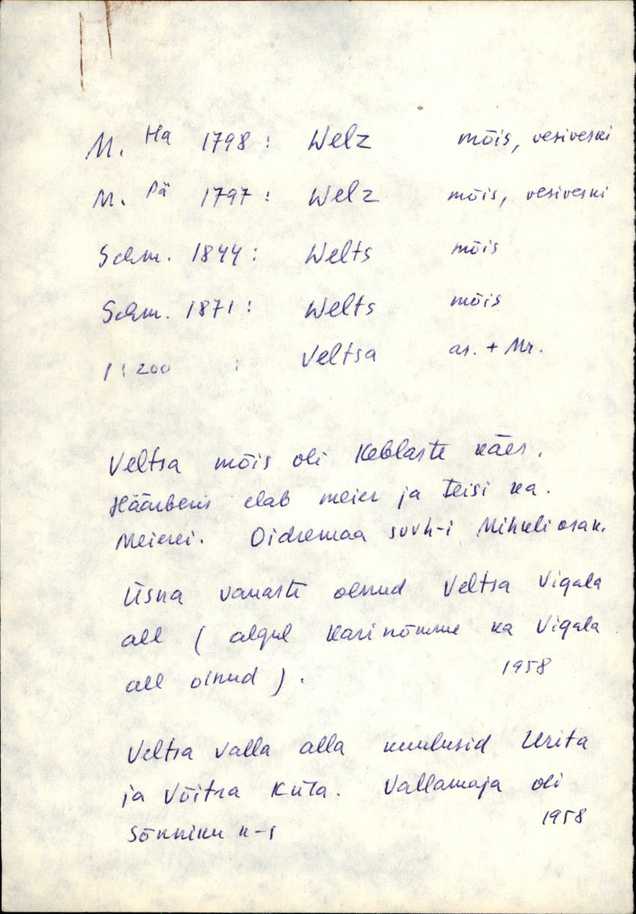 M. Ha 1798 : Welz mõis, vesiveski
M. Pä 1797 : Welz mõis, vesiveski
Schm. 1844 : Welts mõis
Schm. 1871 : Welts mõis
1 : 200 : Veltsa as. + Mr.
Veltsa mõis oli Keblaste käes.
Häärberis elab meier ja teisi ka.
Meierei. Oidremaa sovh-i Mihkli osak.
Üsna vanasti olnud Veltsa Vigala
all ( algul Karinõmme ka Vigala
all olnud ). 1958
Veltsa valla alla kuulusid Urita
ja Võitra küla. Vallamaja oli
Sõnniku k-s 1958